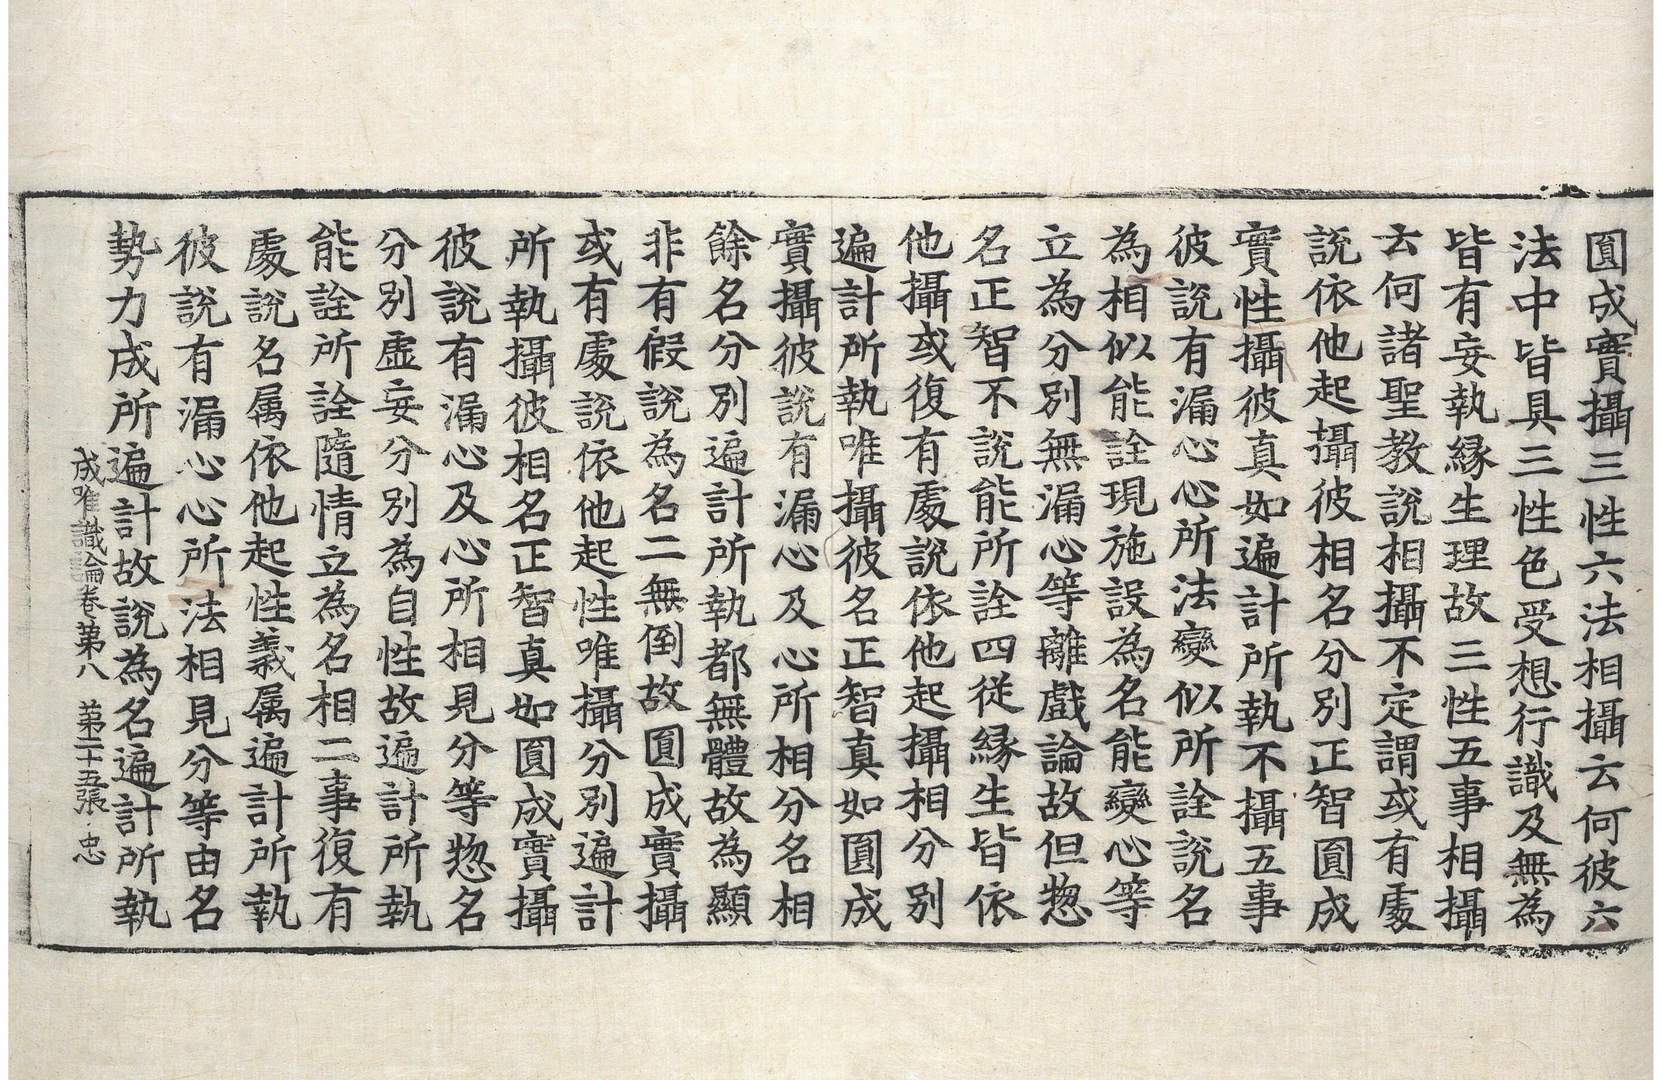 圓成實攝三性六法相攝云何彼六
法中皆具三性色受想行識及無為
皆有妄執縁生理故三性五事相攝
云何諸聖教說相攝不定謂或有處
說依他起攝彼相名分別正智圓成
實性攝彼真如遍計所執不攝五事
彼說有漏心心所法變似所詮說名
為相似能詮現施設為名能變心等
立為分別無漏心等離戲論故但惣
名正智不說能所詮四從縁生皆依
他攝或復有處說依他起攝相分別
遍計所執唯攝彼名正智真如圓成
實攝彼說有漏心及心所相分名相
餘名分別遍計所執都無體故為顯
非有假說為名二無倒故圓成實攝
或有處說依他起性唯攝分別遍計
所執攝彼相名正智真如圓成實攝
彼說有漏心及心所相見分等惣名
分別虛妄分別為自性故遍計所執
能詮所詮隨情立為名相二事復有
處說名属依他起性義属遍計所執
彼說有漏心心所法相見分等由名
勢力成所遍計故說為名遍計所執
成唯識論卷第八　第二十五張　忠